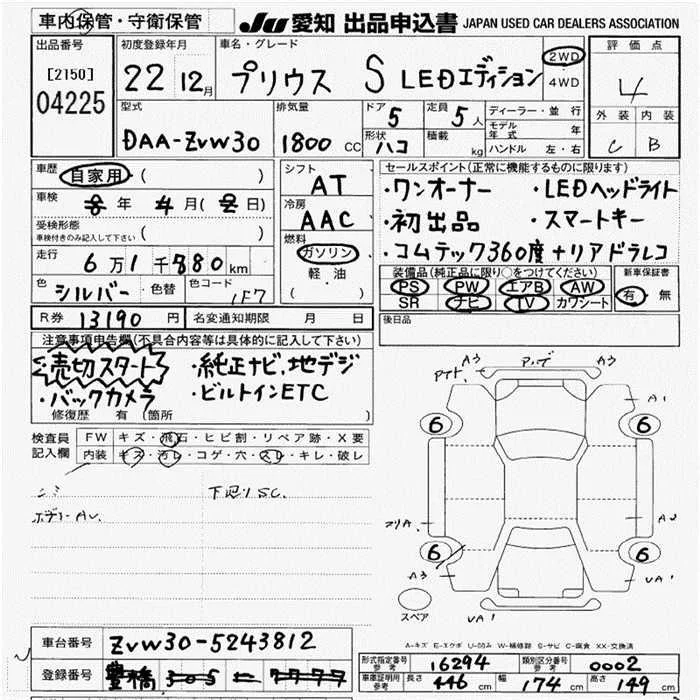 車内保管・守衛保管
JU 愛知 出品申込書 JAPAN USED CAR DEALERS ASSOCIATION
出品番号
[2150]
04225
初度登録年月
22 12月
車名・グレード
プリウス S LEDエディション
2WD
4WD
評価点
4
外装 内装
C B
型式
DAA-ZVW30
排気量
1800 CC
ドア 5
形状 ハコ
定員 5 人
積載 kg
ディーラー・並行
モデル年式 年
ハンドル 左・右
車歴
自家用 ( )
車検
年 4 月 ( 日)
受検形態
車検付きのみ記入して下さい ( )
走行
6 万 1 千 880 km
色 シルバー 色替 色コード 1F7
シフト
AT
冷房
AAC
燃料
ガソリン
軽油
( )
セールスポイント(正常に機能するものに限ります)
・ワンオーナー ・LEDヘッドライト
・初出品 ・スマートキー
・コムテック360度+リアドラレコ
装備品(純正品に限り○をつけてください)
PS PW エアB AW
SR ナビ TV カワシート
新車保証書
有・無
R券 13190 円 名変通知期限 月 日
後日品
注意事項申告欄(不具合内容等は具体的に記入して下さい)
売切スタート ・純正ナビ,地デジ
・バックカメラ ・ビルトインETC
修復歴 有 (箇所 )
検査員記入欄
FW キズ・飛石・ヒビ割・リペア跡・X要
内装 キズ・汚レ・コゲ・穴・スレ・キレ・破レ
下廻りSC.
A3 A3
A1
6 6
A2
6 6
A3
UA1
UA1
スペア
A-キズ E-エクボ U-凹み W-補修跡 S-サビ C-腐食 XX-交換済
車台番号 ZVW30-5243812
登録番号 豊橋 305 7777
形式指定番号 参考 16294 類別区分番号 参考 0002
車庫証明用 参考 長さ 446 cm 幅 174 cm 高さ 149 cm